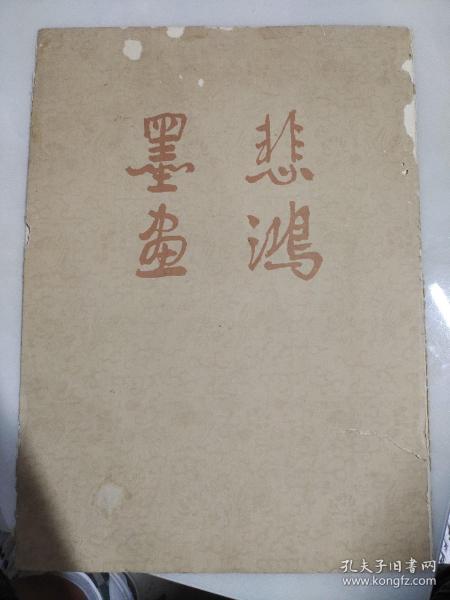 悲鸿
墨画
孔夫子旧书网
www.kongfz.com